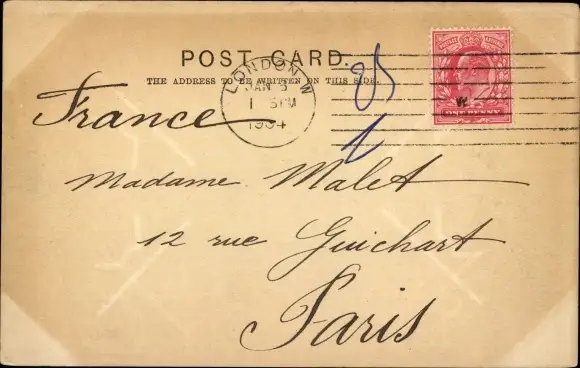 POST CARD.
THE ADDRESS TO BE WRITTEN ON THIS SIDE.
LONDON.W
JAN 5
1904
W
ONE PENNY
France
Madame Malet
12 rue Guichart
Paris